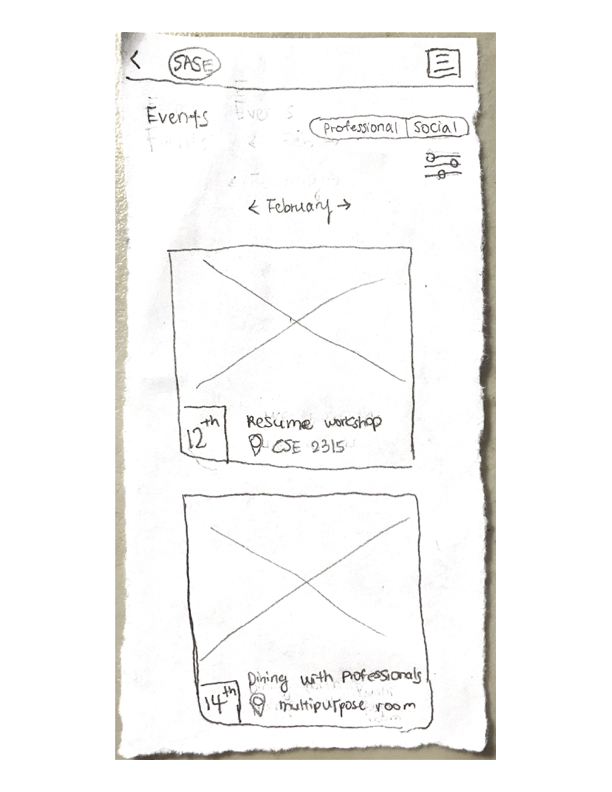 < SASE
Events
Professional Social
< February →
12th
Resume workshop
CSE 2315
14th
Dining with Professionals
multipurpose room